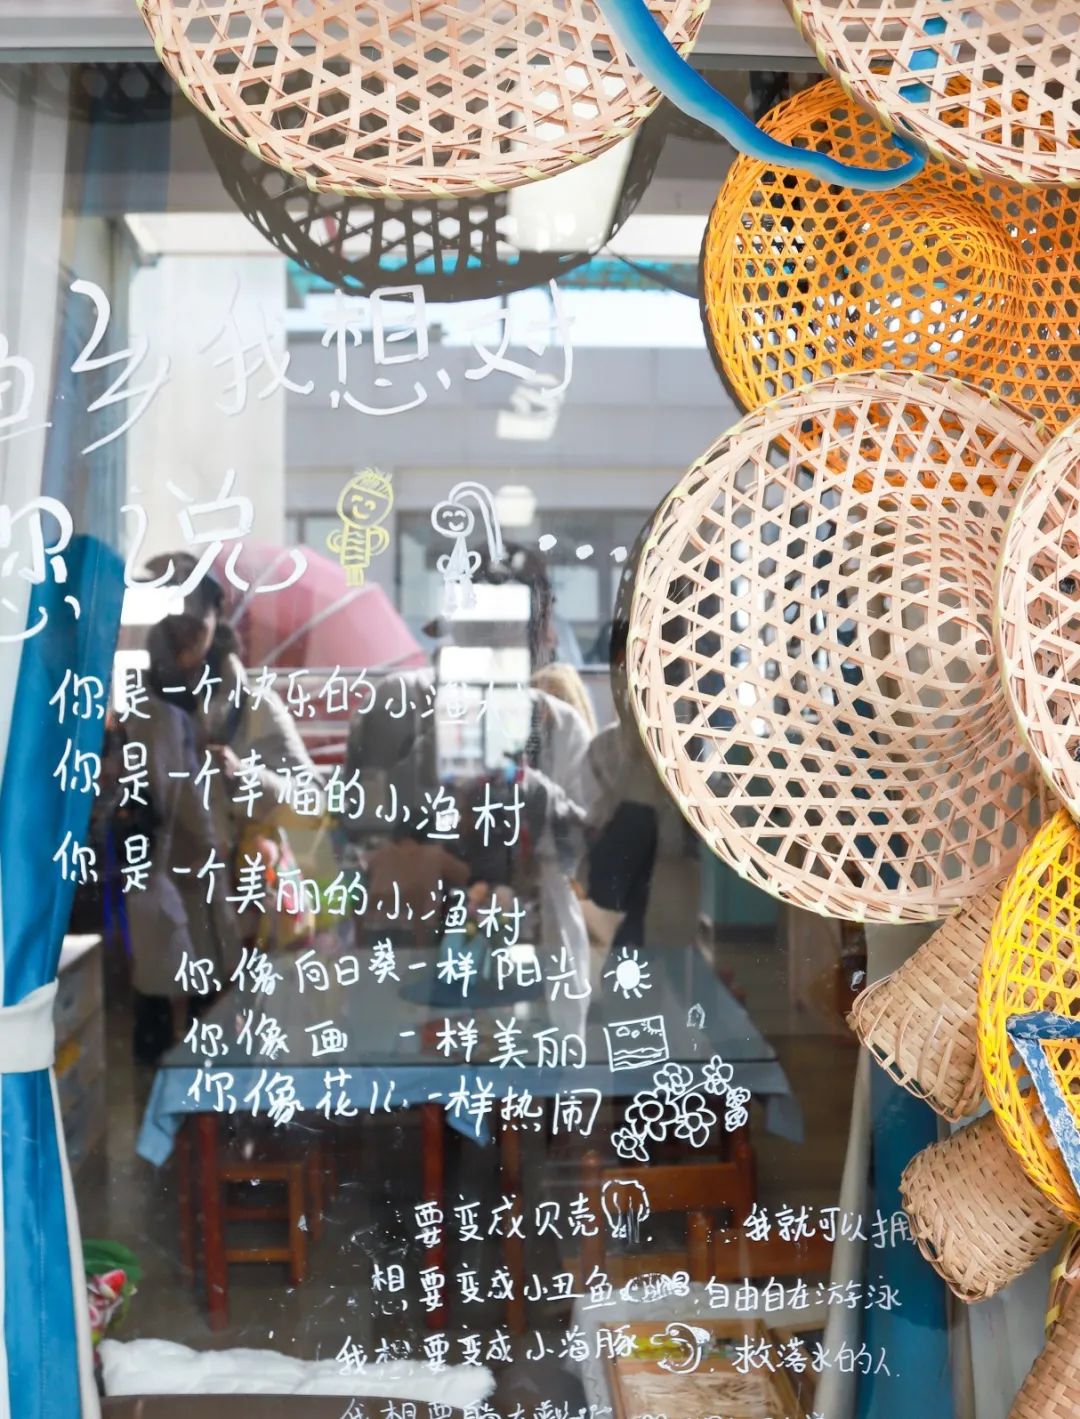 渔乡我想对
您说
你是一个快乐的小渔村
你是一个幸福的小渔村
你是一个美丽的小渔村
你像向日葵一样阳光
你像画一样美丽
你像花儿一样热闹
要变成贝壳 我就可以拥
想要变成小丑鱼 自由自在游泳
我想要变成小海豚 救落水的人
我想要